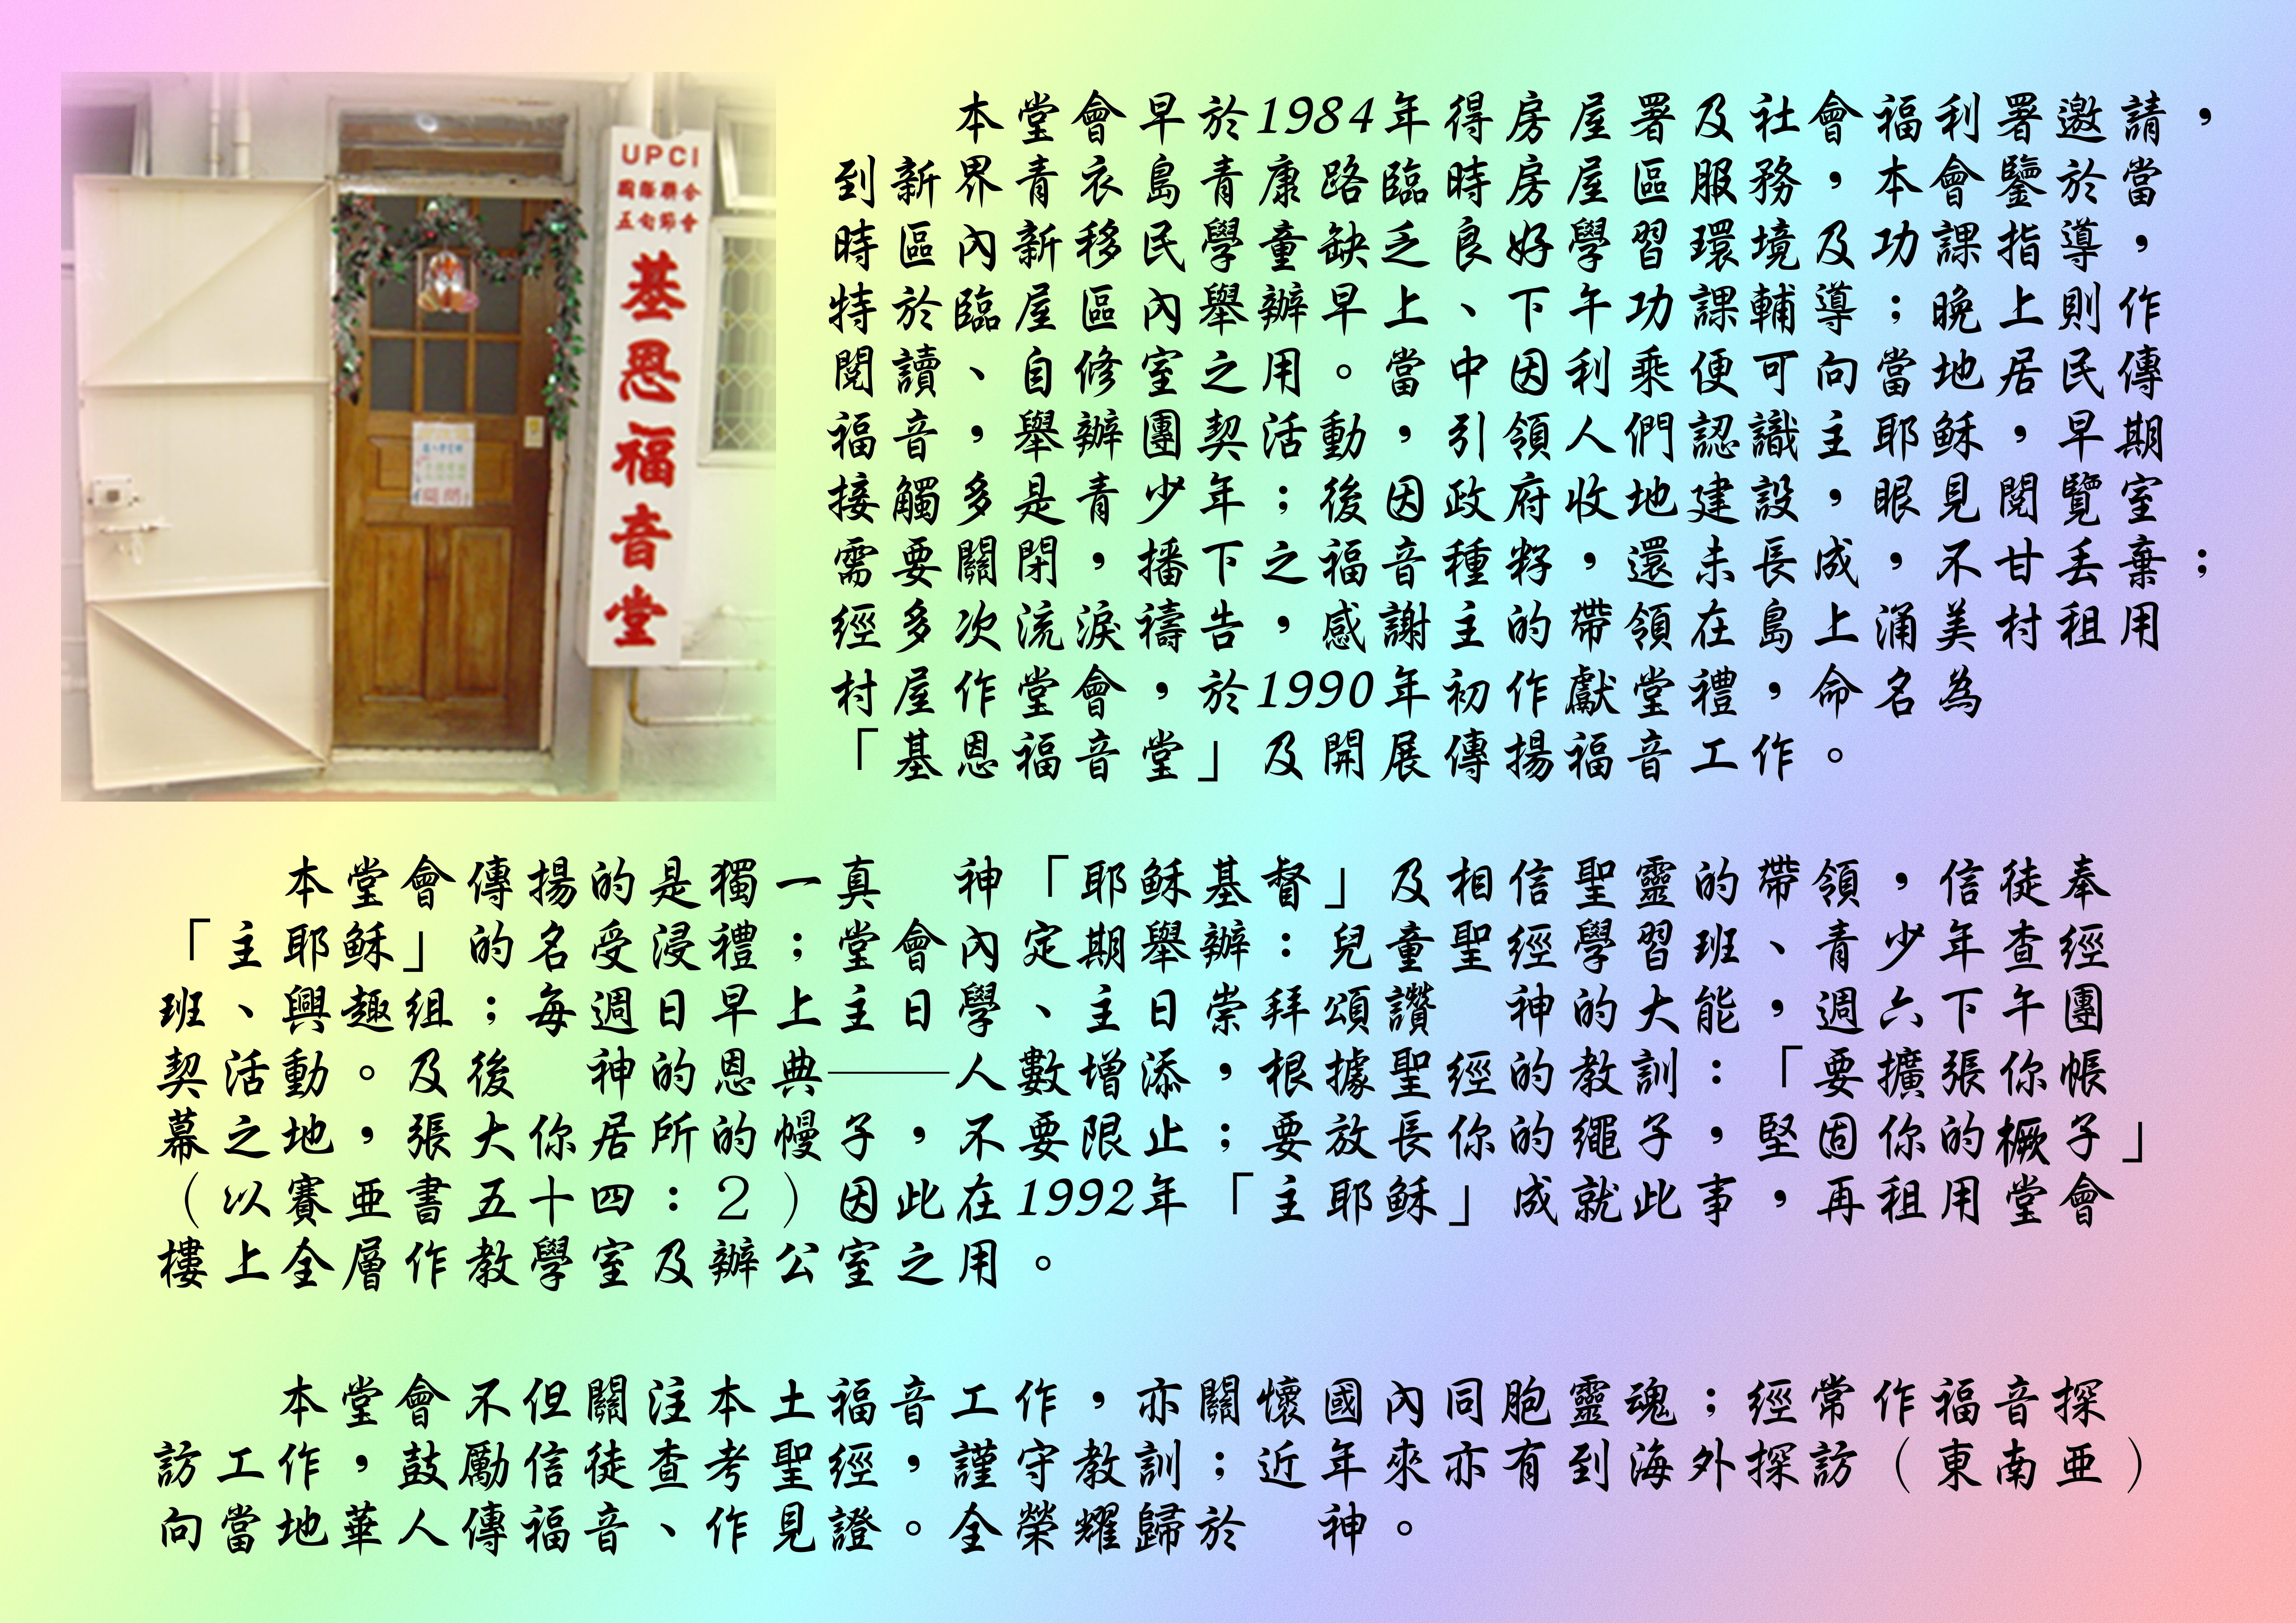 UPCI
國際聯合
五旬節會
基恩福音堂
本堂會早於1984年得房屋署及社會福利署邀請，
到新界青衣島青康路臨時房屋區服務，本會鑒於當
時區內新移民學童缺乏良好學習環境及功課指導，
特於臨屋區內舉辦早上、下午功課輔導；晚上則作
閱讀、自修室之用。當中因利乘便可向當地居民傳
福音，舉辦團契活動，引領人們認識主耶穌，早期
接觸多是青少年；後因政府收地建設，眼見閱覽室
需要關閉，播下之福音種籽，還未長成，不甘丟棄；
經多次流淚禱告，感謝主的帶領在島上涌美村租用
村屋作堂會，於1990年初作獻堂禮，命名為
「基恩福音堂」及開展傳揚福音工作。
本堂會傳揚的是獨一真　神「耶穌基督」及相信聖靈的帶領，信徒奉
「主耶穌」的名受浸禮；堂會內定期舉辦：兒童聖經學習班、青少年查經
班、興趣組；每週日早上主日學、主日崇拜頌讚　神的大能，週六下午團
契活動。及後　神的恩典——人數增添，根據聖經的教訓：「要擴張你帳
幕之地，張大你居所的幔子，不要限止；要放長你的繩子，堅固你的橛子」
（以賽亞書五十四：２）因此在1992年「主耶穌」成就此事，再租用堂會
樓上全層作教學室及辦公室之用。
本堂會不但關注本土福音工作，亦關懷國內同胞靈魂；經常作福音探
訪工作，鼓勵信徒查考聖經，謹守教訓；近年來亦有到海外探訪（東南亞）
向當地華人傳福音、作見證。全榮耀歸於　神。